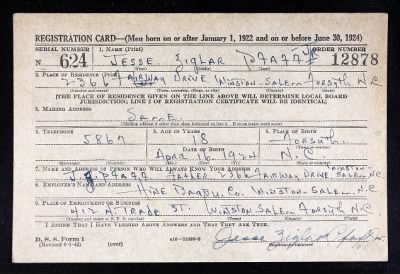 REGISTRATION CARD—(Men born on or after January 1, 1922 and on or before June 30, 1924)
SERIAL NUMBER 1. NAME (Print) ORDER NUMBER
N 624 JESSE ZIGLAR PFAFF 12878
(First) (Middle) (Last)
2. PLACE OF RESIDENCE (Print)
2366 FAIRWAY DRIVE WINSTON-SALEM FORSYTH N.C.
[THE PLACE OF RESIDENCE GIVEN ON THE LINE ABOVE WILL DETERMINE LOCAL BOARD JURISDICTION; LINE 2 OF REGISTRATION CERTIFICATE WILL BE IDENTICAL]
3. MAILING ADDRESS
SAME
4. TELEPHONE 5. AGE IN YEARS 6. PLACE OF BIRTH
5867 18 FORSYTH
DATE OF BIRTH
APRIL 16, 1924 N.C.
7. NAME AND ADDRESS OF PERSON WHO WILL ALWAYS KNOW YOUR ADDRESS
PFAFF 2366 FAIRWAY DRIVE, WINSTON-SALEM, N.C.
8. EMPLOYER'S NAME AND ADDRESS
HINE BAGBY CO. WINSTON-SALEM, N.C.
9. PLACE OF EMPLOYMENT OR BUSINESS
412 N. TRADE ST. WINSTON-SALEM FORSYTH N.C.
I AFFIRM THAT I HAVE VERIFIED ABOVE ANSWERS AND THAT THEY ARE TRUE.
D. S. S. Form 1
(Revised 6-1-42) (over)
Jesse Ziglar Pfaff